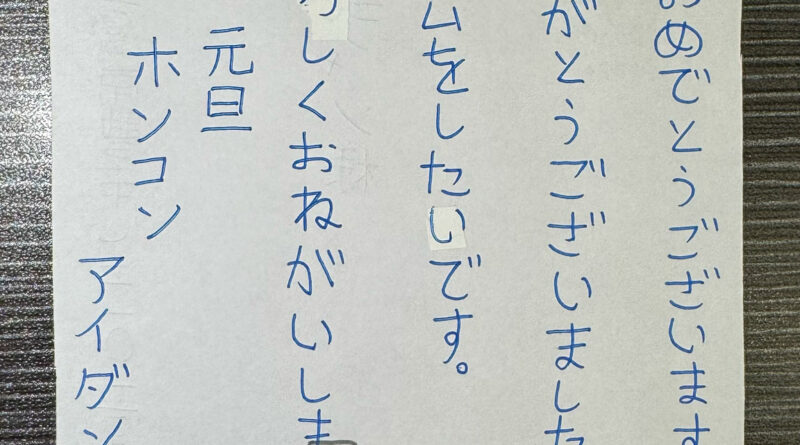 おめでとうございます
がとうございました
ムをしたいです。
ろしくおねがいしま
元旦
ホンコン
アイダン